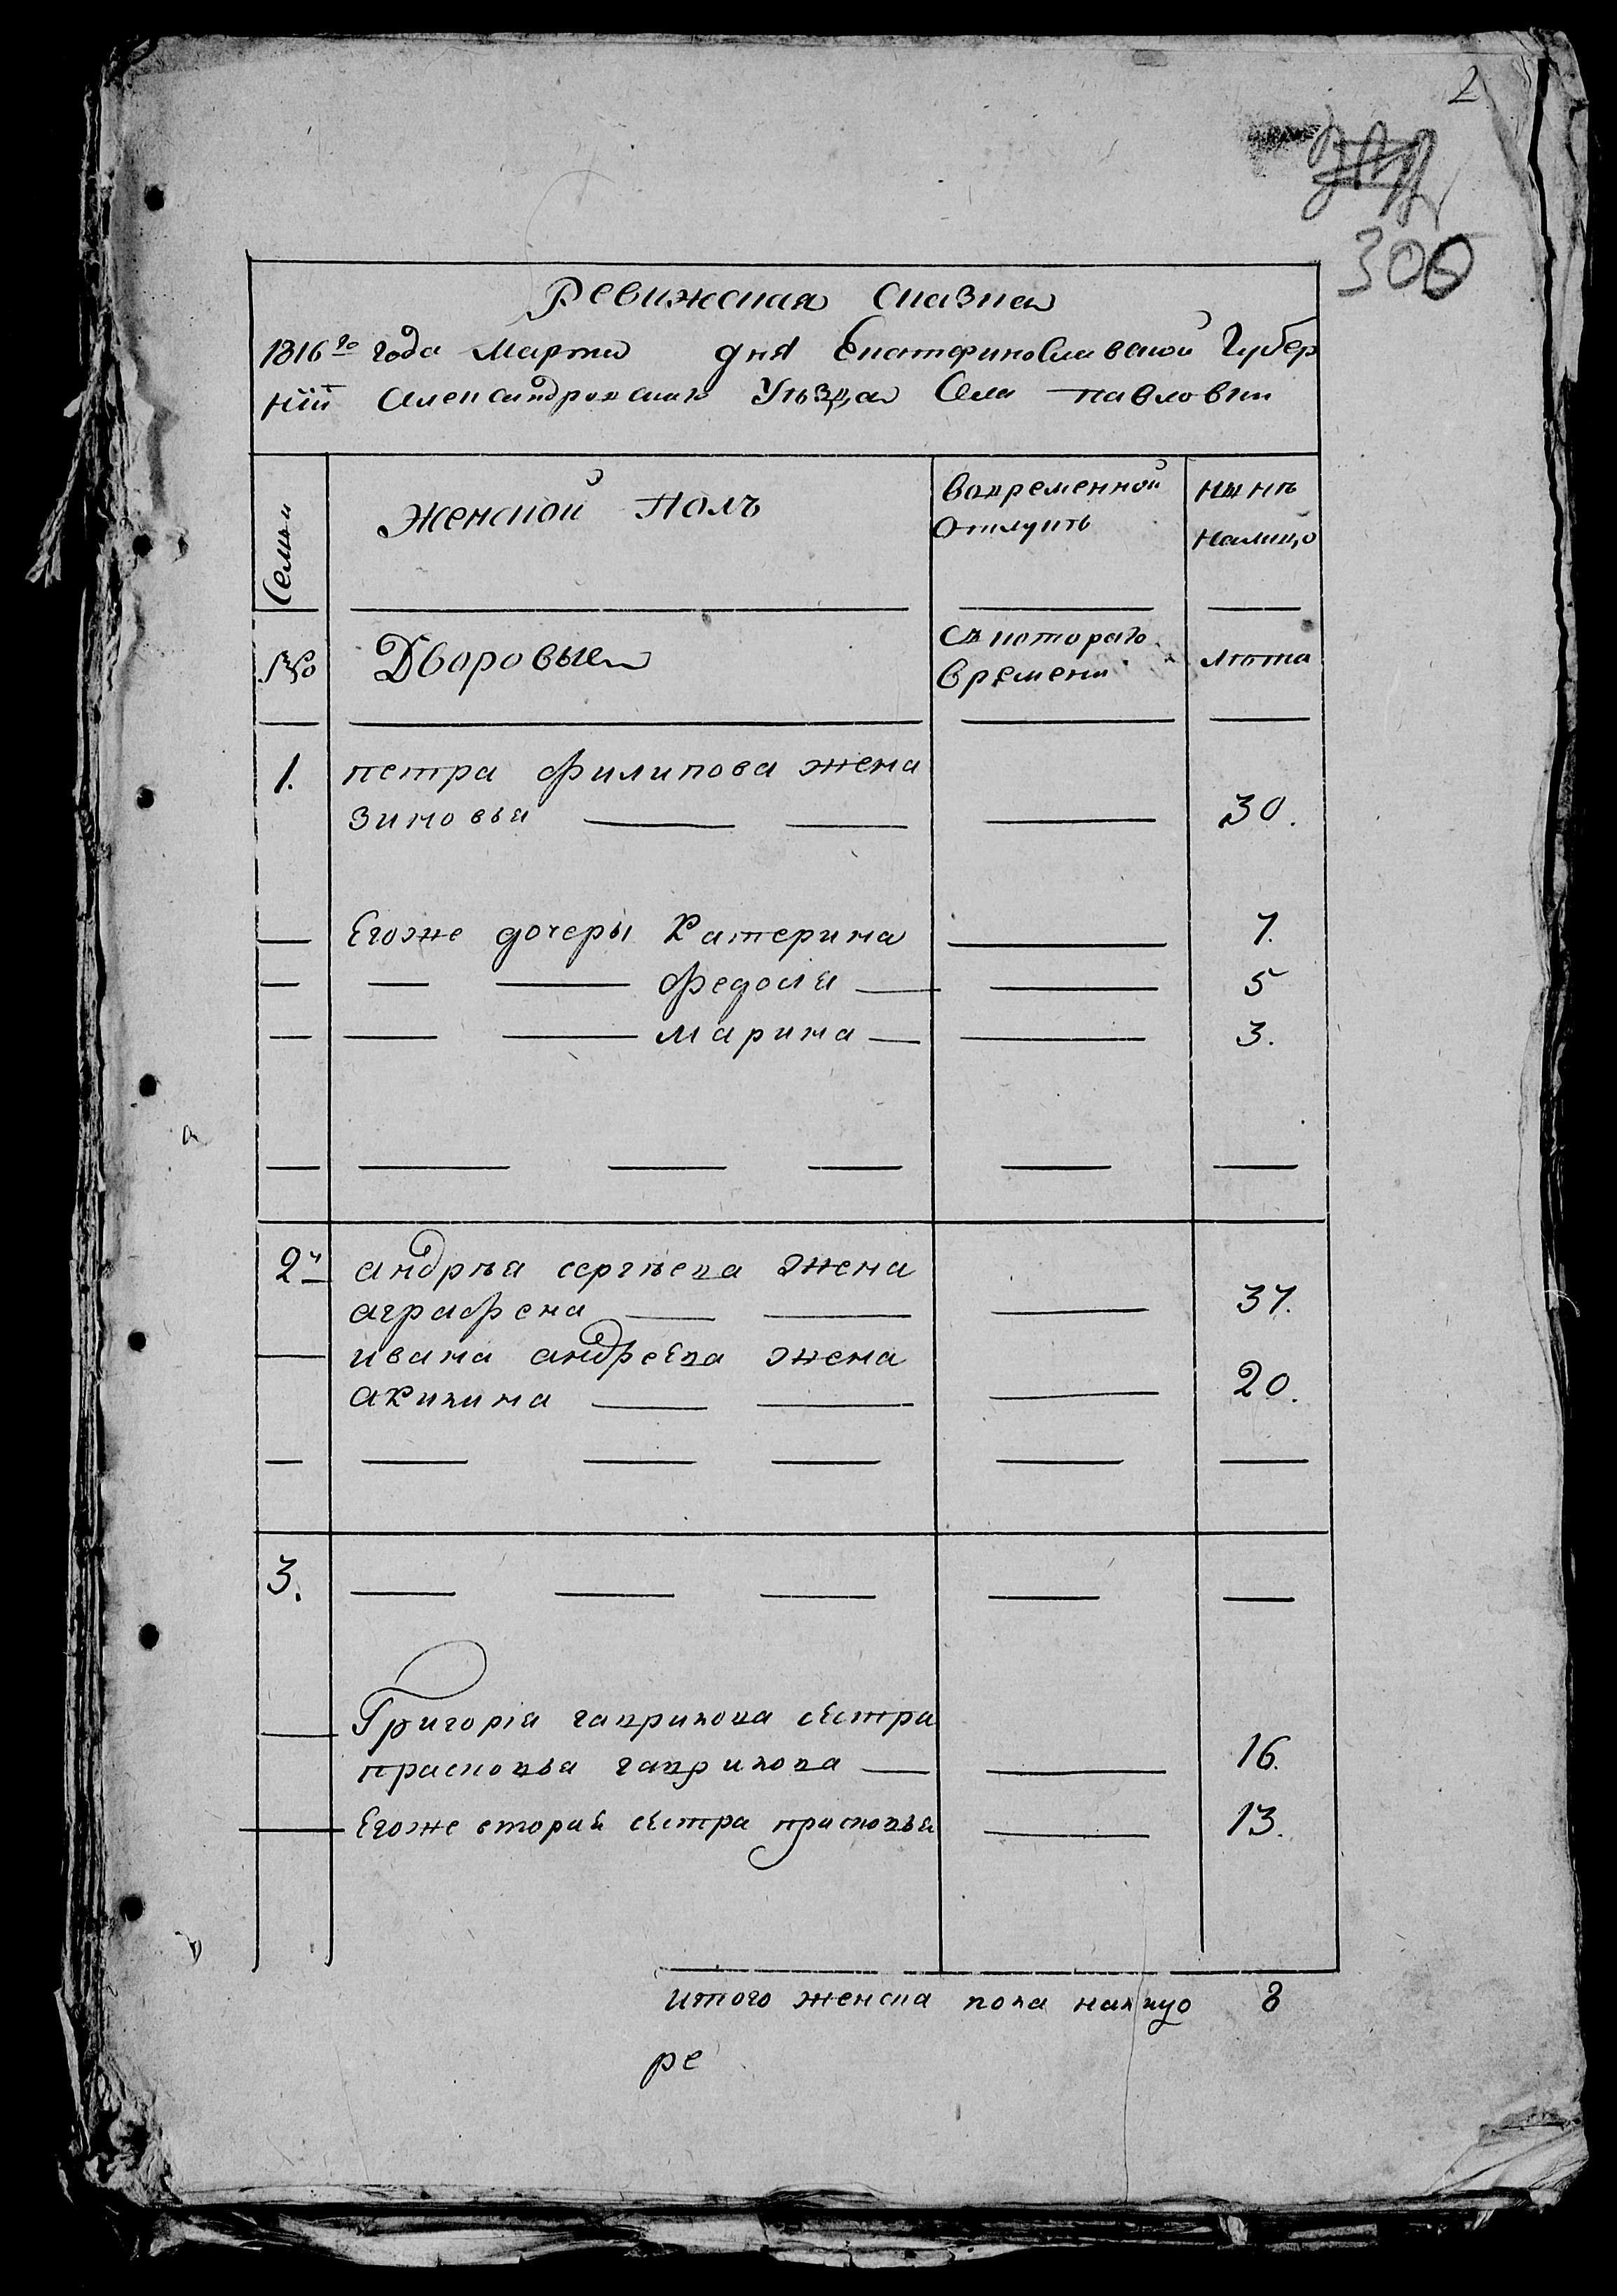 2
306
Ревижская сказка
1816го года Марта дня Екатеринославской Губер
нiи Александровскаго Уѣзда Села павловки
Семьи
Женской Полъ
вовременной
отлуткѣ
нынѣ
налицо
№
Дворовые
Съ котораго
времени
лѣта
1. петра филипова жена
зиновья 30.
Егоже дочеры Катерина 7.
федосия 5
марина 3.
2я андрѣя сергѣева жена
аграфена 37.
ивана андреева жена
акилина 20.
3.
Григорiя гаврилова сестра
прасковья гаврилова 16.
Егоже вторая сестра прасковья 13.
итого женска пола налицо 8
ре